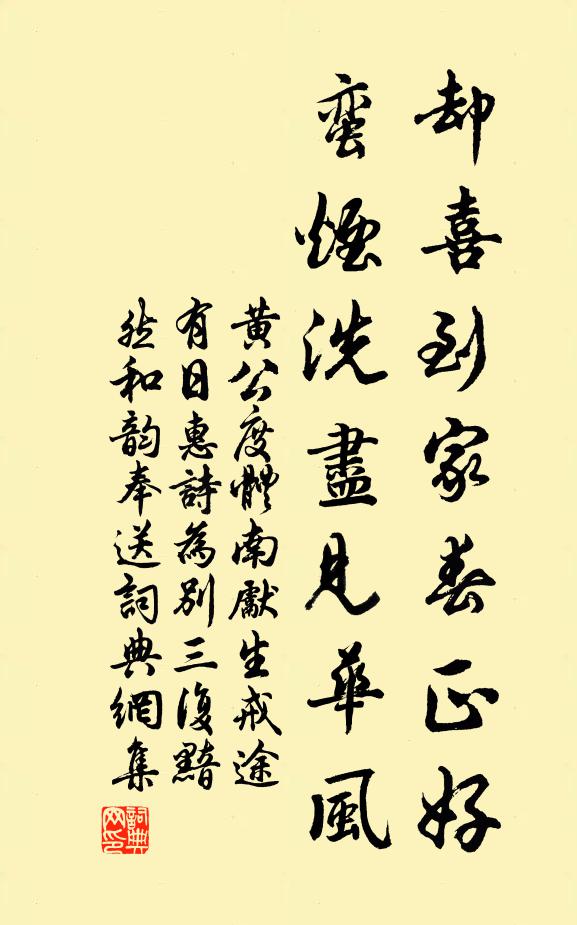 却喜到家春正好
蛮煙洗盡見華風
黃公度體南獻生戒途
有日惠詩為別三復黯
然和韵奉送詞典網集
詞典網印